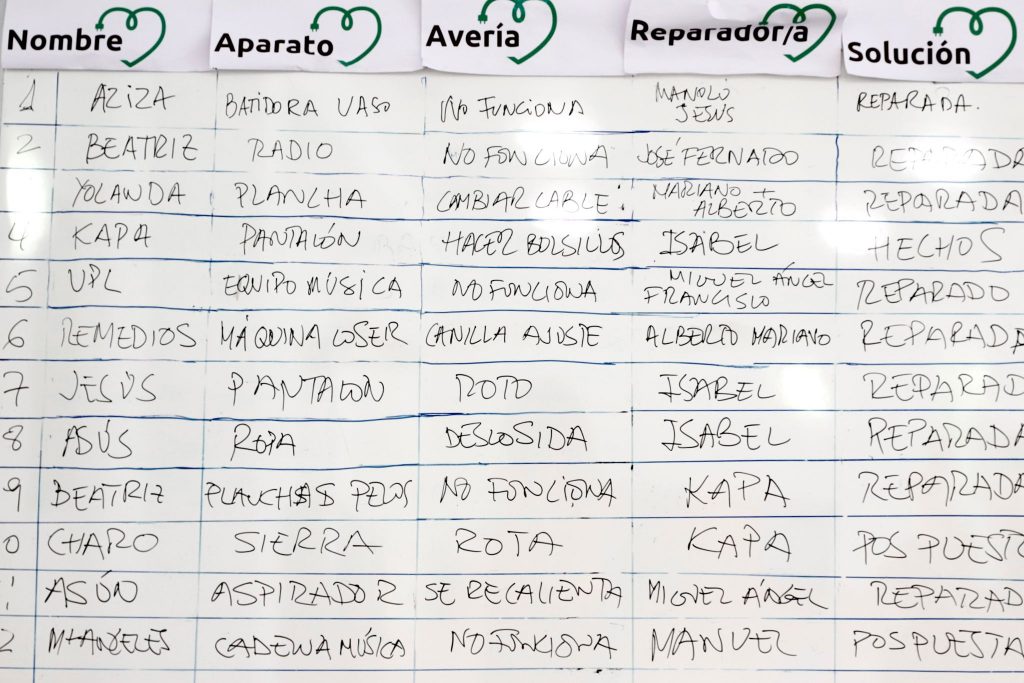 Nombre Aparato Avería Reparador/a Solución
1 AZIZA BATIDORA VASO NO FUNCIONA MANOLO JESÚS REPARADA.
2 BEATRIZ RADIO NO FONCIONA JOSÉ FERNADO REPARADA
YOLANDA PLANCHA CAMBIAR CABLE MARIANO + ALBERTO REPARADA
4 KAPA PANTALÓN HACER BOLSILLOS ISABEL HECHOS
5 UPL EQUIPO MÚSICA NO FUNCIONA MIGUEL ÁNGEL FRANCISCO REPARADO
6 REMEDIOS MÁQUINA COSER CANILLA AJUSTE ALBERTO MARIANO REPARADA
7 JESÚS PANTALON ROTO ISABEL REPARAD
8 ASÚS ROPA DESCOSIDA ISABEL REPARADA
9 BEATRIZ PLANCHAS PELOS NO FONCIONA KAPA REPARADA
0 CHARO SIERRA ROTA KAPA POSPUESTO
ASÚN ASPIRADOR SE RECALIENTA MIGUEL ÁNGEL REPARAD
2 Mª ANGELES CADENA MÚSICA NO FUNKIONA MANUEL POSPUESTA